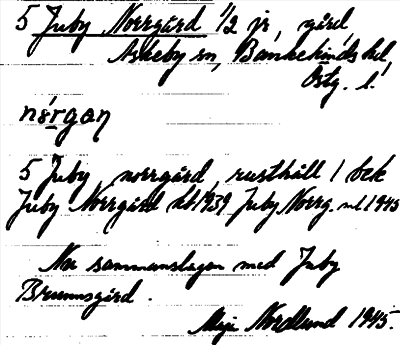 5 Juby Norrgård 1/2 jr, gård,
Askeby sn, Bankekinds hd,
Östg. l.
nørgan
5 Juby, norrgård, rusthåll 1 bek
Juby Norrgård kb 1939 Juby, Norrg. ml 1945
Nu sammanslagen med Juby
Brunnsgård.
Maja Nordlund 1945.